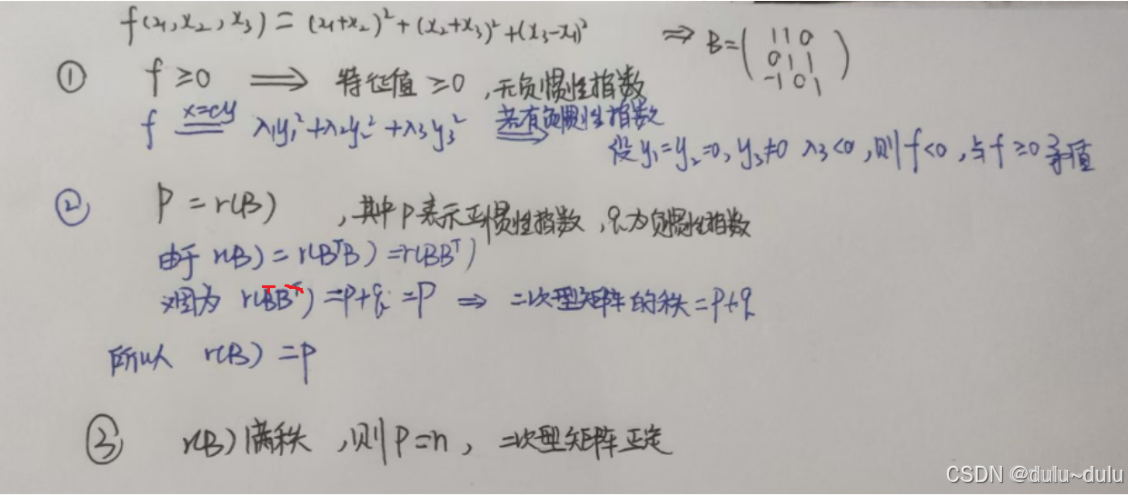 f(x₁,x₂,x₃) = (x₁+x₂)² + (x₂+x₃)² + (x₃-x₁)² ⇒ B = ( 1 1 0
0 1 1
-1 0 1 )
① f ≥ 0 ⟹ 特征值 ≥ 0 ,无负惯性指数
f x=cy λ₁y₁²+λ₂y₂²+λ₃y₃² 若有负惯性指数
设 y₁=y₂=0, y₃≠0 λ₃<0 ,则 f<0 ,与 f ≥0 矛盾
② P = r(B) ,其中 P 表示正惯性指数 , q 为负惯性指数
由于 r(B) = r(BᵀB) = r(BBᵀ)
又因为 r(BᵀB) = P+q = P ⇒ 二次型矩阵的秩 = P+q
所以 r(B) = P
③ r(B) 满秩 ,则 P=n , 二次型矩阵正定
CSDN @dulu~dulu